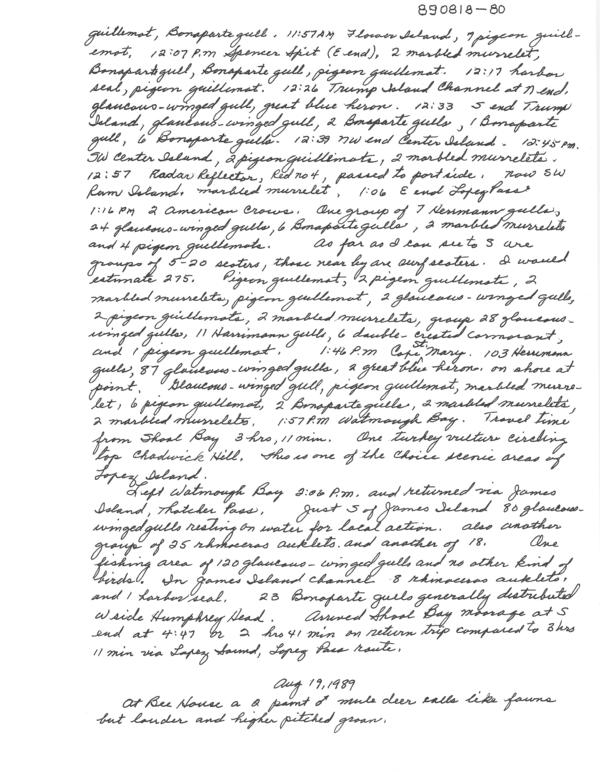 890818-80
guillemot, Bonaparte gull. 11:57 AM Flower Island, 7 pigeon guill-
emot, 12:07 P.M Spencer Spit (E end), 2 marbled murrelet,
Bonaparte gull, Bonaparte gull, pigeon guillemot. 12:17 harbor
seal, pigeon guillemot. 12:26 Trump Island Channel at N end.
glaucous-winged gull, great blue heron. 12:33 S end Trump
Island, glaucous-winged gull, 2 Bonaparte gulls, 1 Bonaparte
gull, 6 Bonaparte gulls. 12:39 NW end Center Island. 12:45 P.M.
SW Center Island, 2 pigeon guillemots, 2 marbled murrelets.
12:57 Radar Reflector, Red No 4, passed to port side. Now SW
Ram Island. marbled murrelet, 1:06 E end Lopez Pass
1:16 PM 2 American Crows. One group of 7 Hermann gulls,
24 glaucous-winged gulls, 6 Bonaparte gulls, 2 marbled murrelets
and 4 pigeon guillemots. As far as I can see to S are
groups of 5-20 scoters, those near by are surf scoters. I would
estimate 275. Pigeon guillemot, 2 pigeon guillemots, 2
marbled murrelets, pigeon guillemot, 2 glaucous-winged gulls,
2 pigeon guillemots, 2 marbled murrelets, group 28 glaucous-
winged gulls, 11 Harrimann gulls, 6 double-crested cormorant,
and 1 pigeon guillemot. 1:46 P.M Cape St. Mary. 103 Hermann
gulls, 87 glaucous-winged gulls, 2 great blue heron. on shore at
point. Glaucous-winged gull, pigeon guillemot, marbled murre-
let, 6 pigeon guillemot, 2 Bonaparte gulls, 2 marbled murrelets,
2 marbled murrelets. 1:57 P.M Watmough Bay. Travel time
from Shoal Bay 3 hrs, 11 min. One turkey vulture circling
top Chadwick Hill. This is one of the choice scenic areas of
Lopez Island.
Left Watmough Bay 2:06 P.M. and returned via James
Island, Thatcher Pass. Just S of James Island 80 glaucous-
winged gulls resting on water for local action. also another
group of 25 rhinoceros auklets. and another of 18. One
fishing area of 120 glaucous-winged gulls and no other kind of
birds. In James Island Channel 8 rhinoceros auklets.
and 1 harbor seal. 23 Bonaparte gulls generally distributed
W side Humphrey Head. Arrived Shoal Bay moorage at S
end at 4:47 or 2 hrs 41 min on return trip compared to 3 hrs
11 min via Lopez Sound, Lopez Pass route.
Aug 19, 1989
At Bee House a 2 point ♂ mule deer calls like fawns
but louder and higher pitched groan.